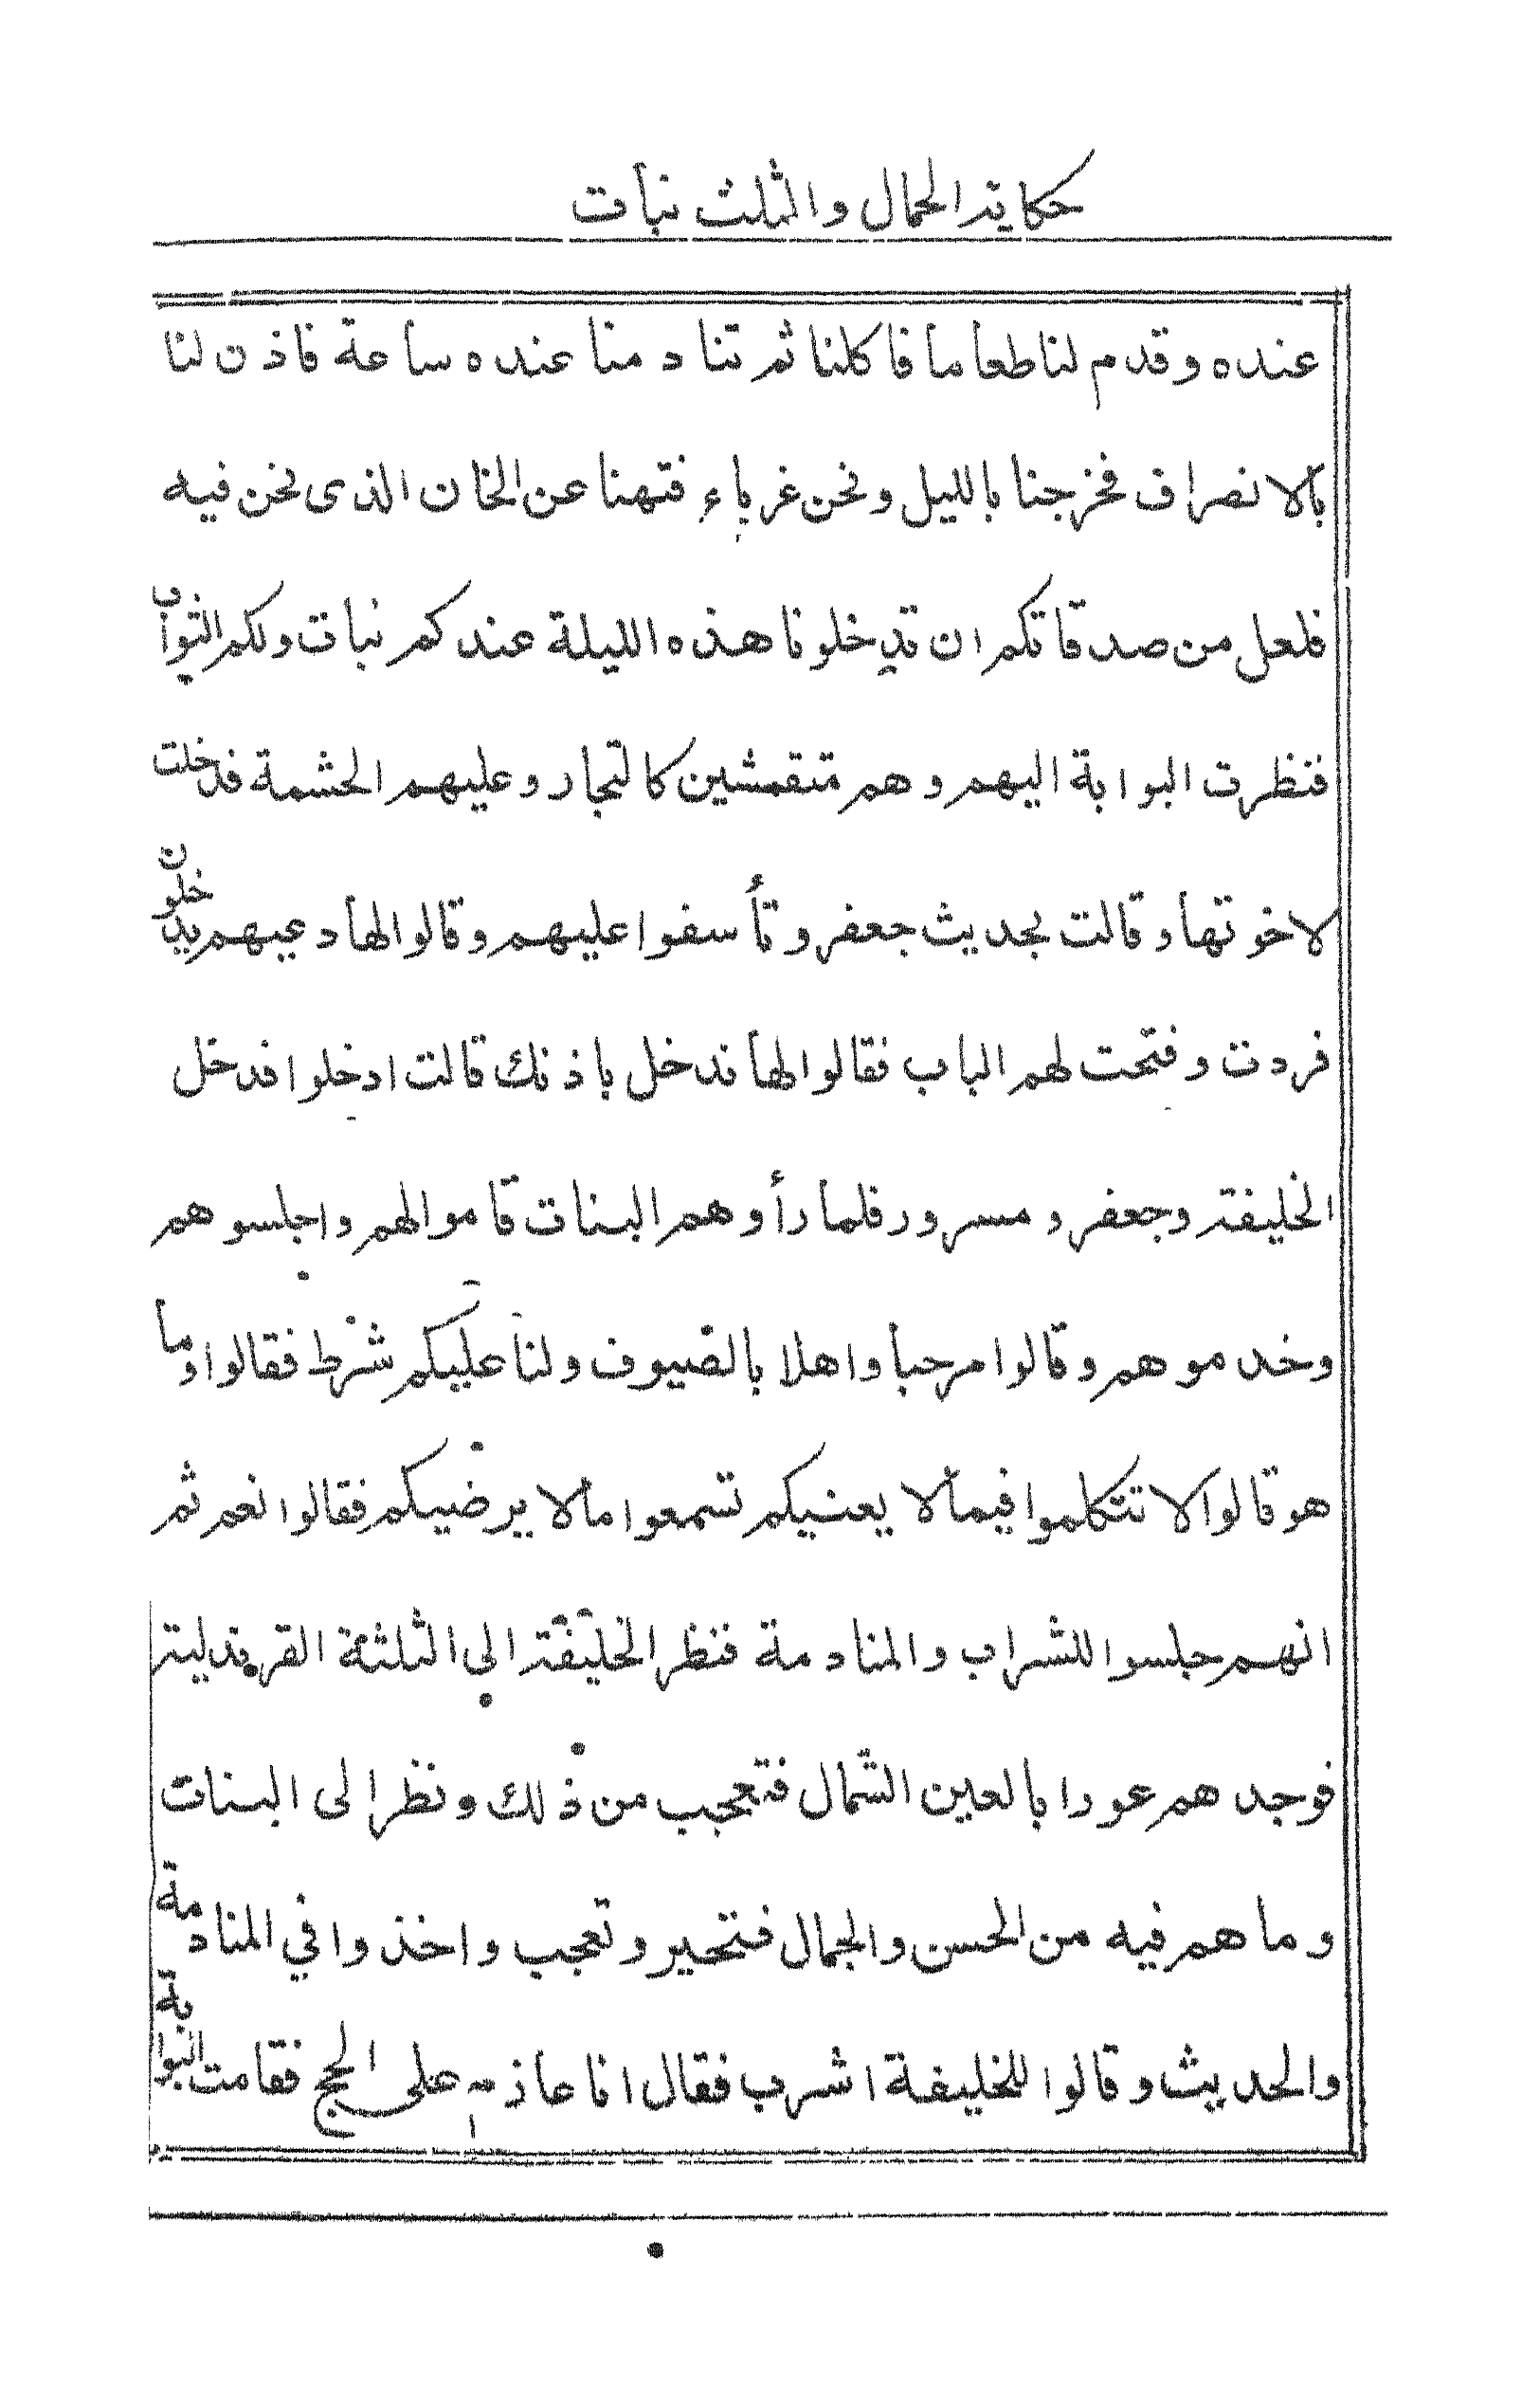 حكاية الحمال والثلث نبات
عنده وقدم لنا طعاما فاكلنا ثم تنادمنا عنده ساعة فاذن لنا
بالانصراف فخرجنا بالليل ونحن غرباء فتهنا عن الخان الذى نحن فيه
فلعل من صدقاتكم ان تدخلونا هذه الليلة عندكم نبات ولكم الثواب
فنظرت البوابة اليهم وهم متقمشين كالتجار وعليهم الحشمة فدخلت
لاخوتها وقالت بحديث جعفر وتأسفوا عليهم وقالوا لها دعيهم يدخلون
فردت وفتحت لهم الباب فقالوا لها ندخل باذنك قالت ادخلوا فدخل
الخليفة وجعفر ومسرور فلما رأوهم البنات قاموا لهم واجلسوهم
وخدموهم وقالوا مرحبا واهلا بالضيوف ولنا عليكم شرط فقالوا وما
هو قالوا لا تتكلموا فيما لا يعنيكم تسمعوا ما لا يرضيكم فقالوا نعم ثم
انهم جلسوا للشراب والمنادمة فنظر الخليفة الى الثلثة القرندلية
فوجدهم عورا بالعين الشمال فتعجب من ذلك ونظر الى البنات
وما هم فيه من الحسن والجمال فتحير وتعجب واخذوا في المنادمة
والحديث وقالوا للخليفة اشرب فقال انا عازم على الحج فقامت البوابة